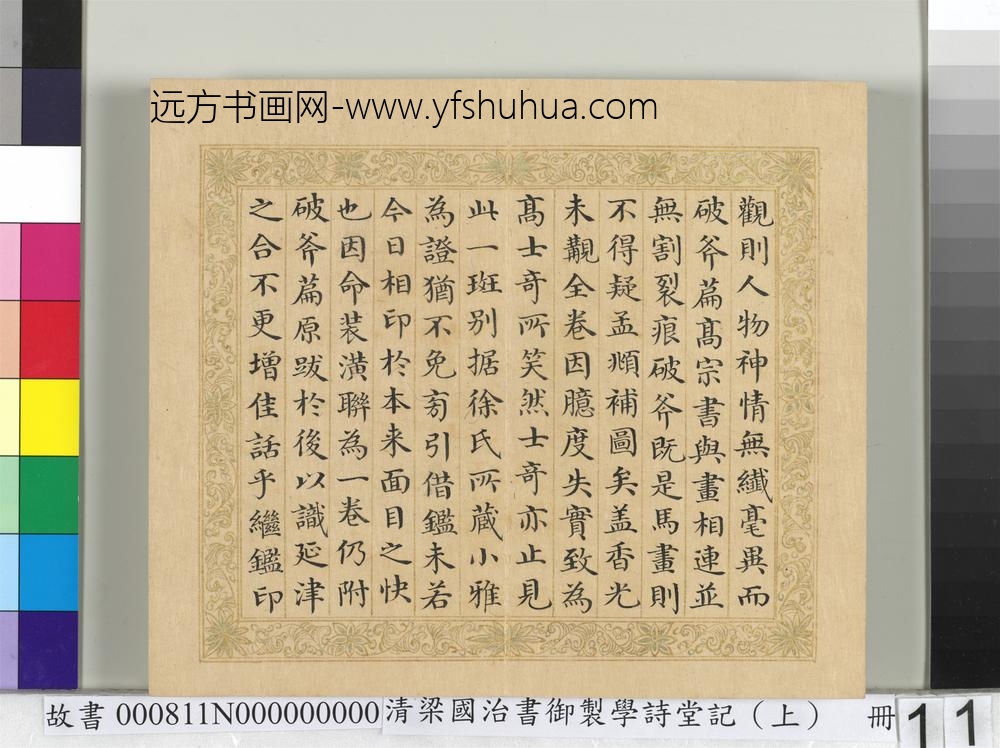 远方书画网-www.yfshuhua.com
觀則人物神情無纖毫異而
破斧篇髙宗書與畫相連並
無割裂痕破斧既是馬畫則
不得疑孟頫補圖矣盖香光
未覩全卷因臆度失實致為
髙士奇所笑然士奇亦止見
此一斑别据徐氏所蔵小雅
為證猶不免旁引借鑑未若
今日相印於本来面目之快
也因命装潢聨為一卷仍附
破斧篇原跋於後以識延津
之合不更增佳話乎繼鑑印
故書 000811N000000000 清梁國治書御製學詩堂記（上） 冊 11